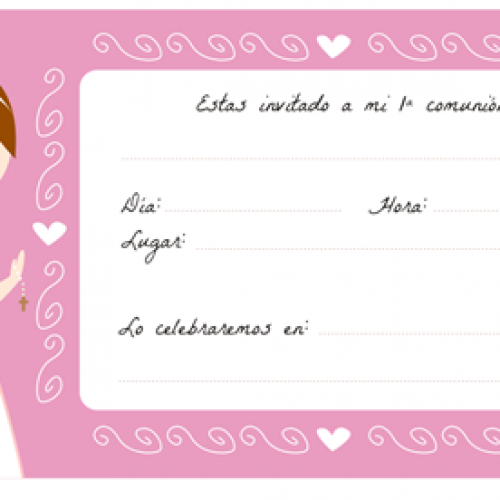 Estas invitado a mi 1ª comunión
Día: Hora:
Lugar:
Lo celebraremos en: